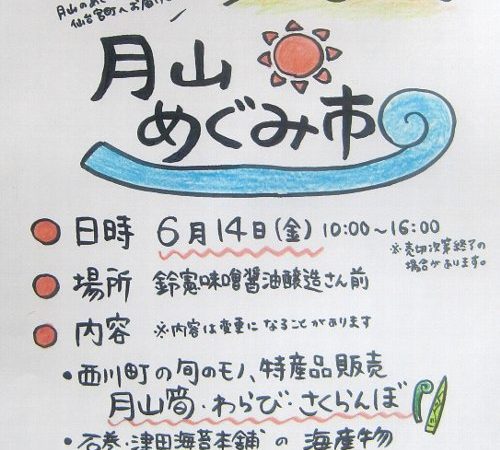 月山のめぐみ
仙台宮町へお届け
月山
めぐみ市
日時 6月14日(金) 10:00~16:00
※売切次第終了の
場合があります。
場所 鈴憲味噌醤油醸造さん前
内容 ※内容は変更になることがあります
・西川町の旬のモノ、特産品販売
月山筍・わらび・さくらんぼ
・石巻・津田海苔本舗の海産物